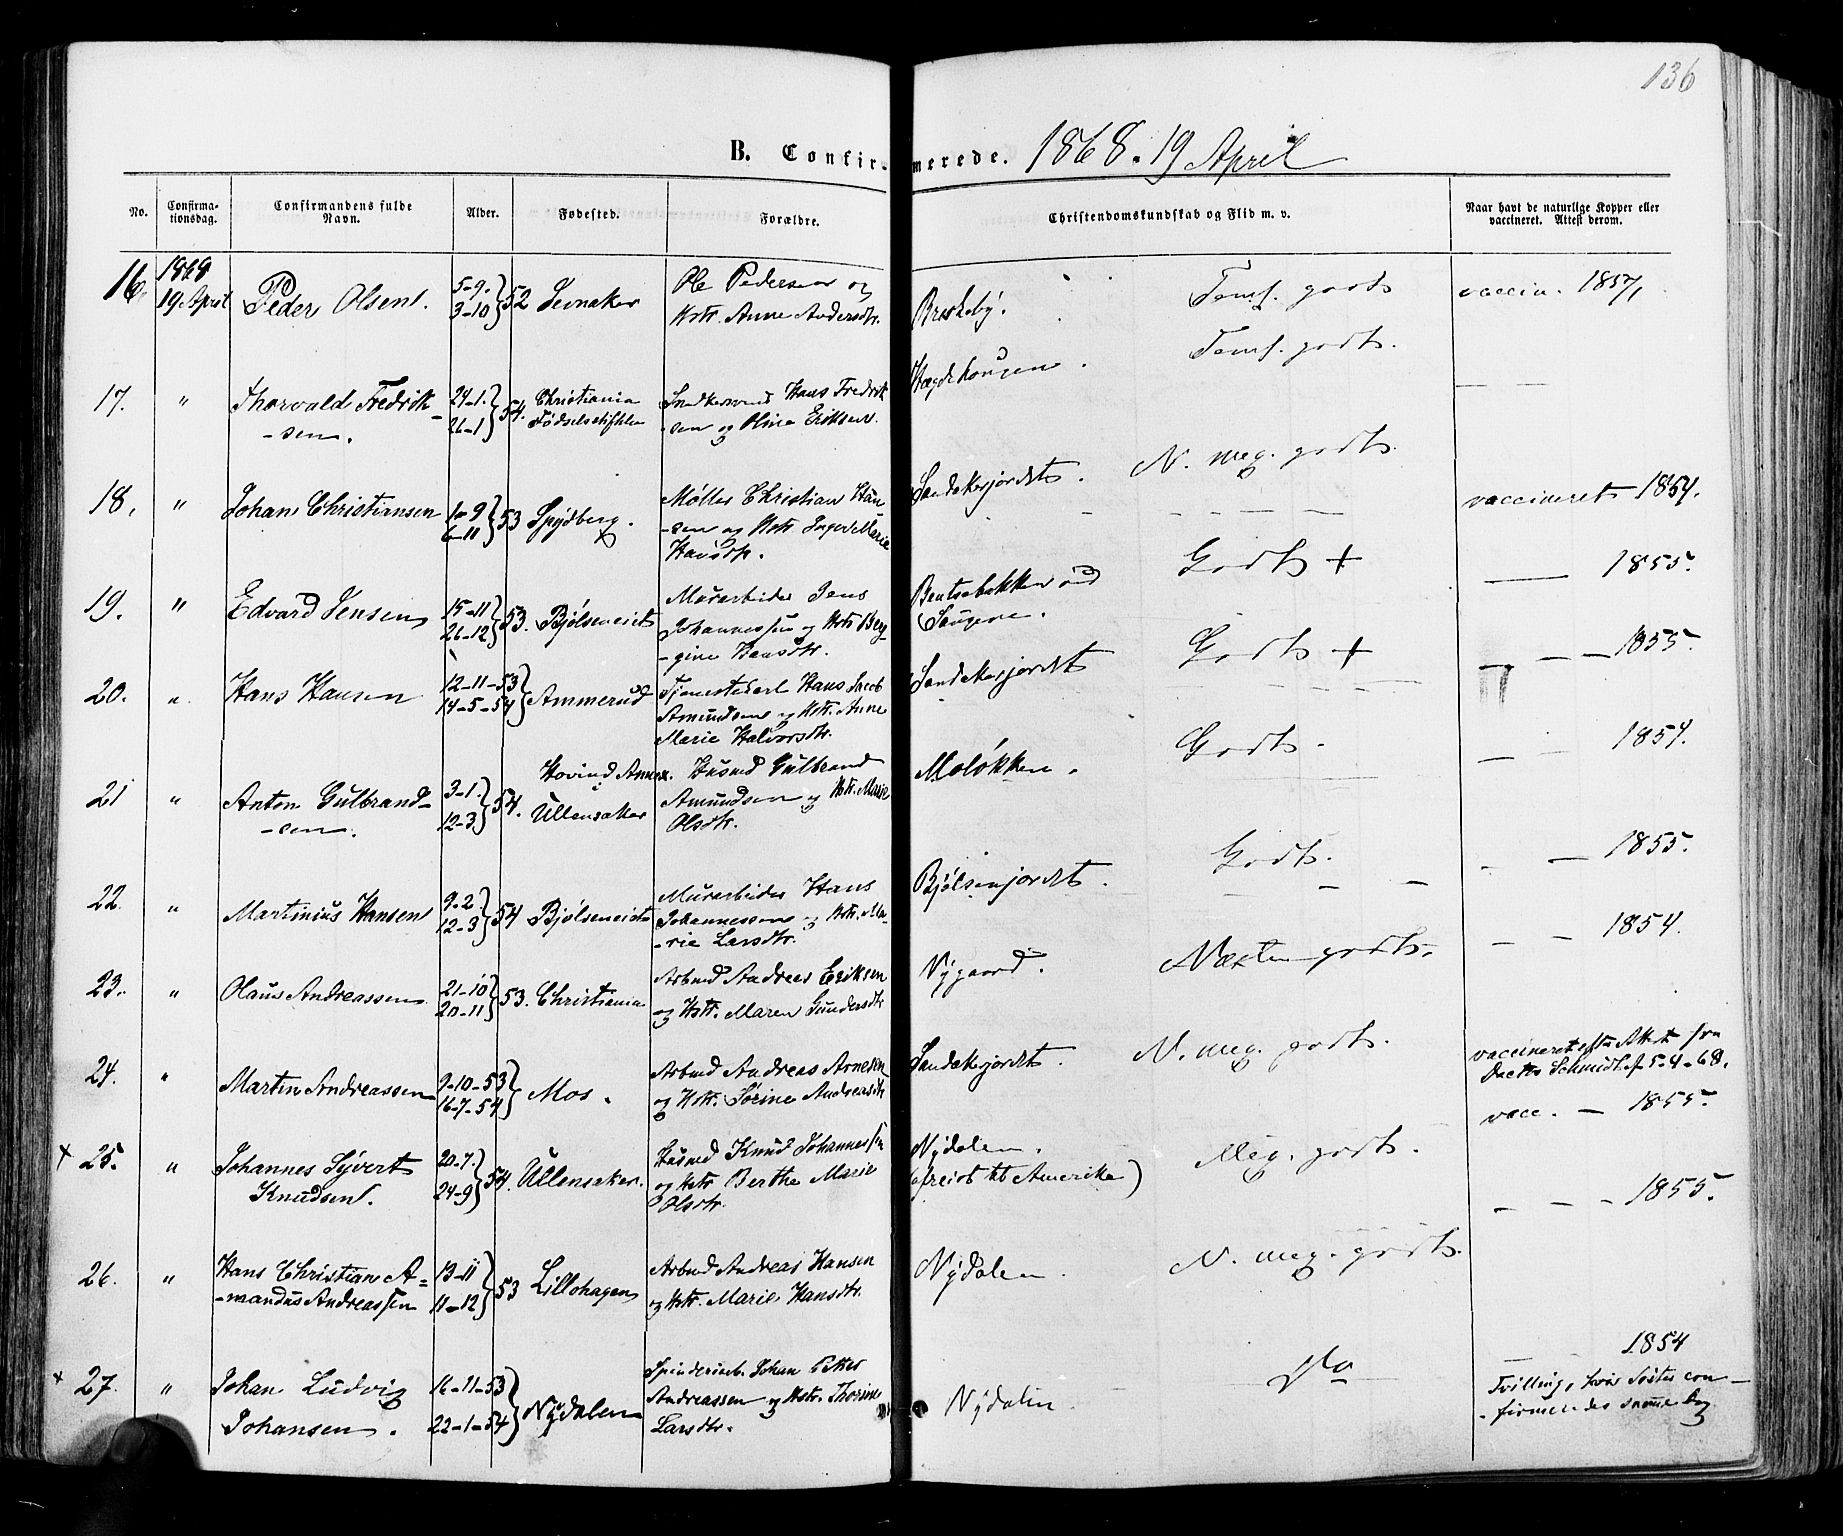 136
B. Confirmerede. 1868. 19 April
No. Confirmationsdag. Confirmandens fulde Navn. Alder. Fødested. Forældre. Christendomskundskab og Flid m. v. Naar havt de naturlige Kopper eller vaccineret. Attest derom.
16. 1868 19 April Peder Olsen. 5-9. 3-10 } 52 Jevnaker Ole Pedersen og
Hstr. Anne Andersdtr. Briskeby. Temf. godt vaccin. 1857
17. " Thorvald Fredrik- 24-1. 26-1 } 54. Christiania Snedkersvend Hans Fredrik Hægdehougen. Temf. godt. — —
-sen. Fødselsstiftelse -sen og Oline Eriksen.
18. " Johan Christiansen 1-9 6-11 } 53 Spydberg. Møller Christian Han Sandakerjordet. N. meg. godt. vaccineret 1854.
-sen og Hstr. Inger Marie
Hansdtr.
19. " Edvard Jensen 15-11 26-12 } 53. Bjølseneiet Murarbeider Jens Bentsebakken ved Godt + — 1855.
Johannessen og Hstr Ber- Saugene.
-gine Hansdtr.
20. " Hans Hansen 12-11-53 14-5-54 } Ammerud Tjenestekarl Hans Jacob Sandakerjordet Godt + — — — 1855.
Amundsen og Hstr. Anne
Marie Halvorsdtr.
21 " Anton Gulbrand- 3-1. 12-3 } 54. Hovind Annex. Husmd Gulbrand Moløkken. Godt. — — 1854.
-sen. Ullensaker Amundsen og Hstr. Marie
Olsdtr.
22. " Martinius Hansen 9-2. 12-3 } 54 Bjølseneiet Murarbeider Hans Bjølsenjordet. Godt. — — 1855.
Johannessen og Hstr. Ma-
-rie Larsdtr.
23. " Olaus Andreassen 21-10 20-11 } 53. Christiania Arbmd Andreas Eriksen Nygaard. Næsten godt. — — 1854.
og Hstr. Maren Gundersdtr
24. " Martin Andreassen 9-10-53 16-7-54 } Mos. Arbmd Andreas Arnesen Sandakerjordet. N. meg. godt. vaccineret efter Attest fra
og Hstr. Sørine Andreasdtr Doctor Schmidt af 5-4-68.
× 25. " Johannes Syvert 20-7. 24-9 } 54. Ullensaker. Husmd Knud Johannessen Nydalen. Meg. godt. vacc. — 1855.
Knudsen. og Hstr Berthe Marie (afreist til Amerika)
Olsdtr.
26. " Hans Christian A- 13-11 11-12 } 53 Lillohagen Arbmd Andreas Hansen Nydalen. N. meg. godt. — — — 1855.
-mandus Andreassen og Hstr. Marie Hansdtr.
× 27. " Johan Ludvig 16-11-53 22-1-54 } Nydalen Spinderiarb. Johan Petter Nydalen. Do — — 1854
Johansen. Andreassen og Hstr. Thorine Tvilling, hvis Søster con-
Larsdtr. -firmeredes samme Dag